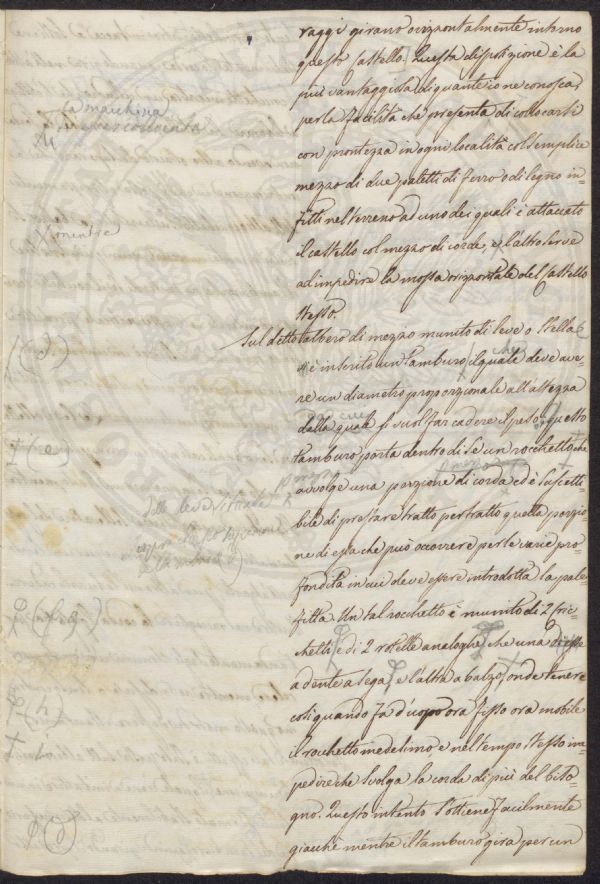 raggi girano orizzontalmente intorno
questo castello. Questa disposizione è la
più vantaggiosa di quante io ne conosca,
per la facilità che presenta di collocarsi
con prontezza in ogni località col semplice
mezzo di due paletti di ferro o di legno in=
fitti nel terreno ad uno dei quali è attaccato
il castello col mezzo di corde, e l'altro serve
ad impedire la mossa orizzontale del castello
stesso.
Sul detto albero di mezzo munito di leve o stella
si è inserito un tamburo, il quale deve ave=
re un diametro proporzionale all'altezza
dalla quale si vuol far cadere il peso; questo
tamburo porta dentro di se un rocchetto che
avvolge una porzione di corda ed è suscetti=
bile di prestare tratto per tratto quella porzio=
ne di essa che può occorrere per le varie pro=
fondità in cui deve essere introdotta la pala=
fitta. Un tal rocchetto è munito di 2 fric=
chetti e di 2 rotelle analoghe, che una
a dente a sega, e l'altra a balzo, onde tenere
così quando fa d'uopo ora fisso ora mobile
il rocchetto medesimo e nel tempo stesso im=
pedire che svolga la corda di più del biso=
gno. Questo intento s'ottiene facilmente
giacchè mentre il tamburo gira per un
la macchina
X mentre
(d.)
(e)
delle leve
(f.g.)
(h)